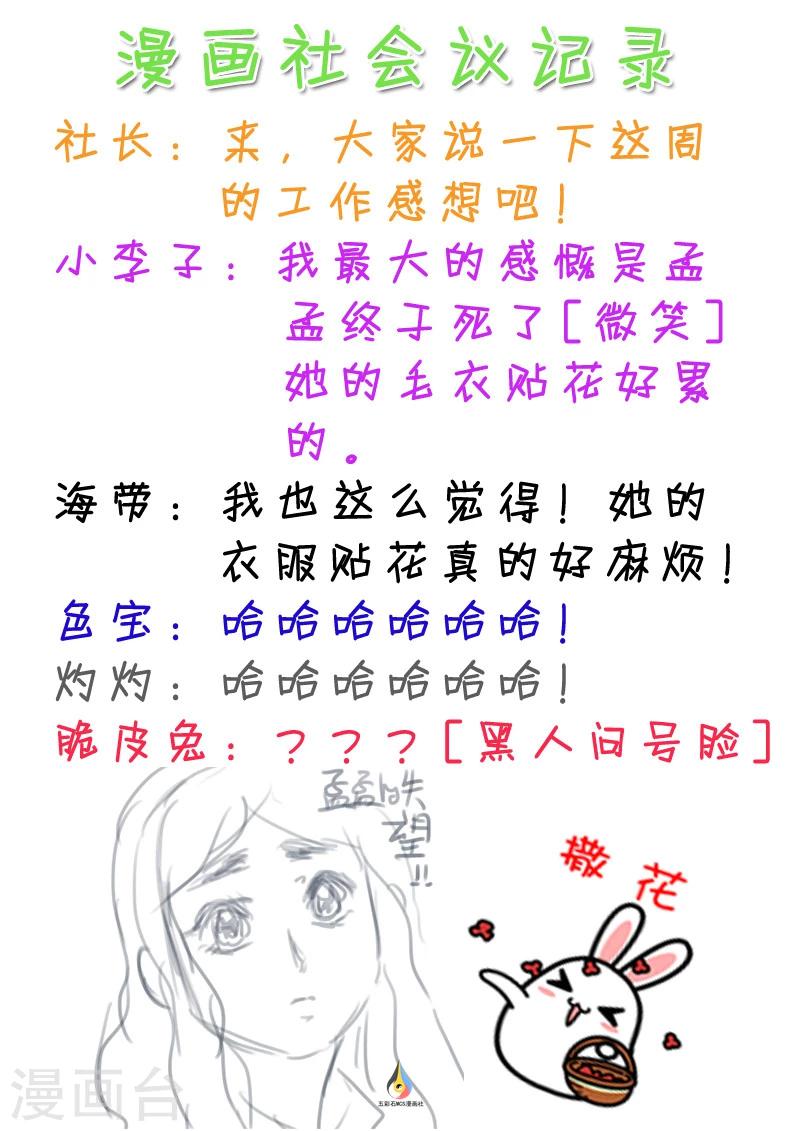 漫画社会议记录
社长：来，大家说一下这周
的工作感想吧！
小李子：我最大的感慨是孟
孟终于死了[微笑]
她的毛衣贴花好累
的。
海带：我也这么觉得！她的
衣服贴花真的好麻烦！
色宝：哈哈哈哈哈哈！
灼灼：哈哈哈哈哈哈！
脆皮兔：？？？[黑人问号脸]
孟孟昳
望!!
撒花
五彩石MCS漫画社
漫画台